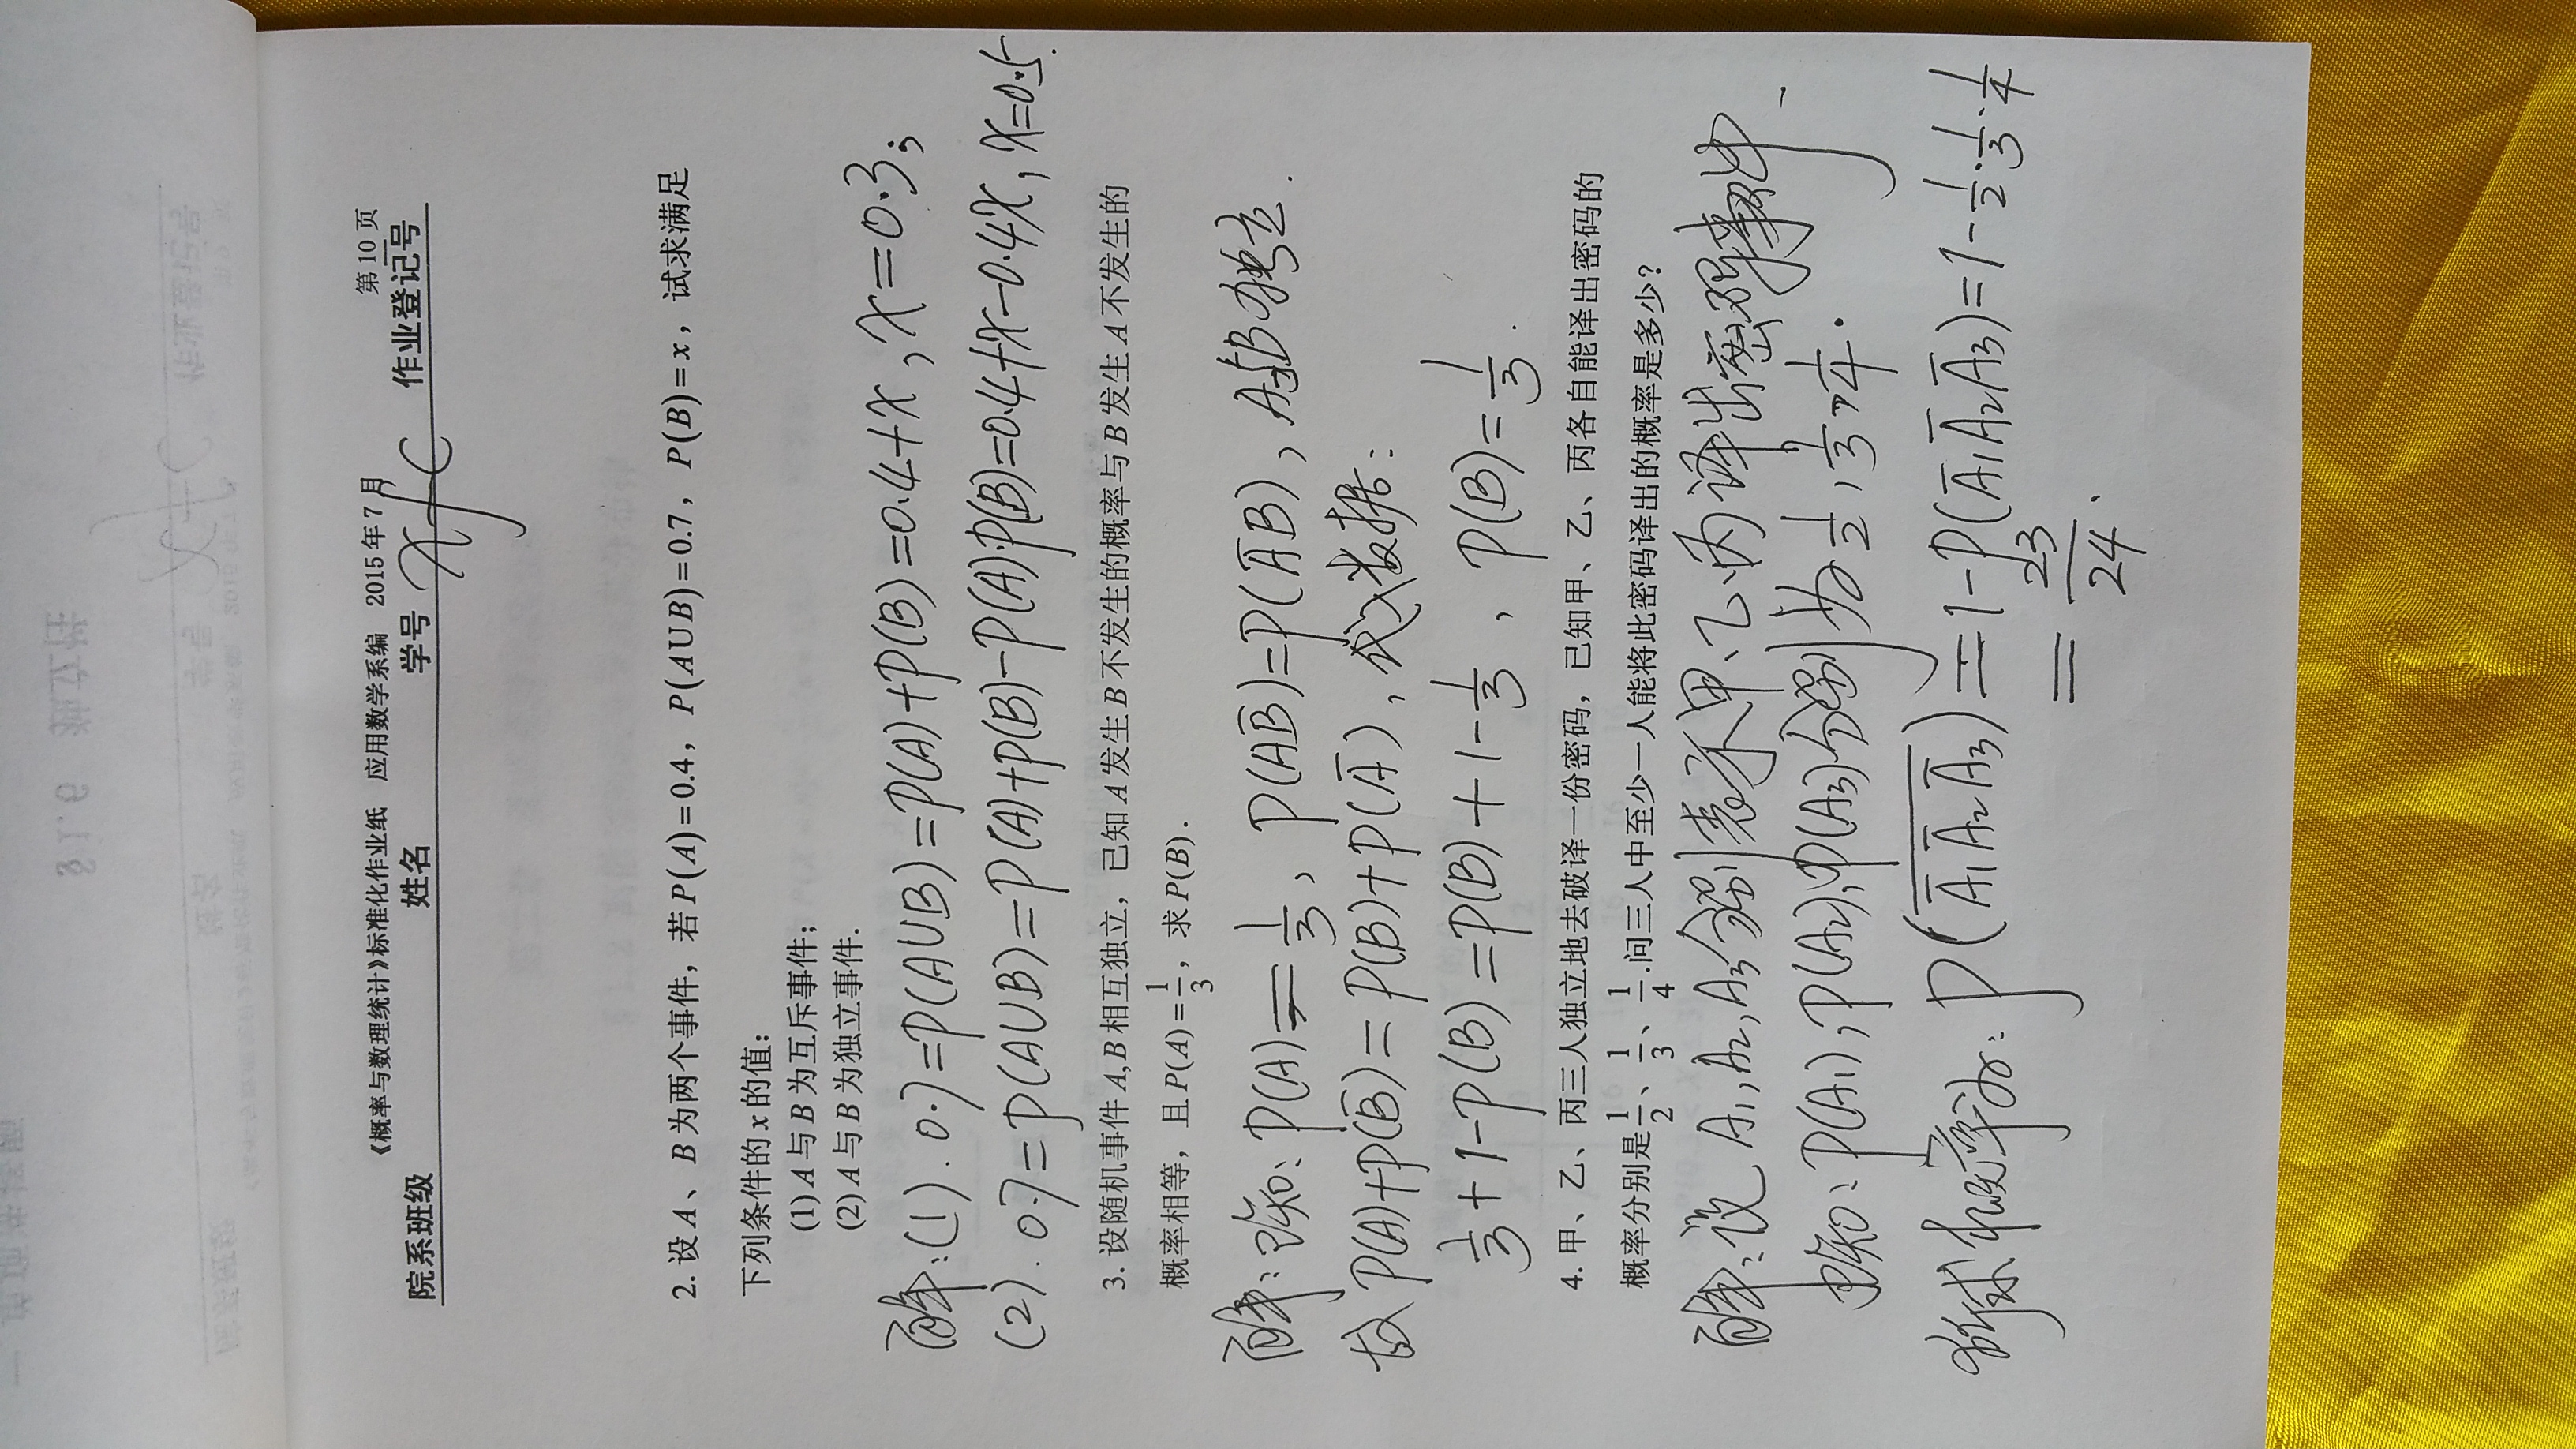 §1.6 独立性
《概率与数理统计》标准化作业纸 应用数学系编 2015年7月 第10页
院系班级 姓名 学号 xfc 作业登记号
2. 设A、B为两个事件，若P(A)=0.4，P(A∪B)=0.7，P(B)=x，试求满足
下列条件的x的值：
(1) A与B为互斥事件；
(2) A与B为独立事件.
解:(1). 0.7=P(A∪B)=P(A)+P(B)=0.4+x, x=0.3;
(2). 0.7=P(A∪B)=P(A)+P(B)-P(A)·P(B)=0.4+x-0.4x, x=0.5.
3. 设随机事件A,B相互独立，已知A发生B不发生的概率与B发生A不发生的
概率相等，且P(A)=1/3，求P(B).
解: 已知: P(A)=1/3, P(AB̄)=P(ĀB), A与B独立.
故 P(A)+P(B̄)=P(B)+P(Ā), 代入数据:
1/3+1-P(B)=P(B)+1-1/3, P(B)=1/3.
4. 甲、乙、丙三人独立地去破译一份密码，已知甲、乙、丙各自能译出密码的
概率分别是1/2、1/3、1/4.问三人中至少一人能将此密码译出的概率是多少？
解:设 A₁,A₂,A₃分别表示甲、乙、丙译出密码事件.
已知: P(A₁),P(A₂),P(A₃)分别为1/2,1/3,1/4.
所求概率为: P(\overline{Ā₁Ā₂Ā₃})=1-P(Ā₁Ā₂Ā₃)=1-1/2·1/3·1/4
=23/24.